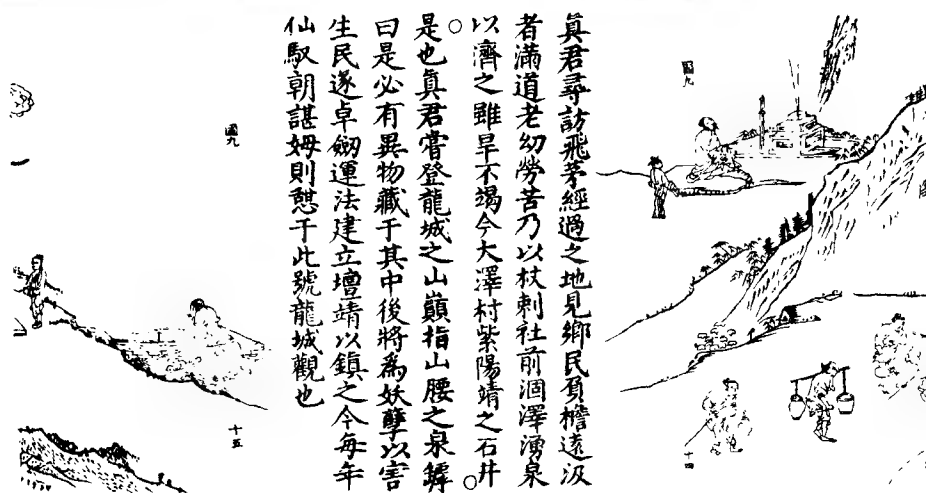 圖九
十四
真君尋訪飛茅經過之地見鄉民負檐遠汲
者滿道老幼勞苦乃以杖刺社前涸澤湧泉
以濟之雖旱不竭今大澤村紫陽靖之石井
是也真君嘗登龍城之山巔指山腰之泉罅
曰是必有異物藏于其中後將為妖孽以害
生民遂卓劒運法建立壇靖以鎮之今每年
仙馭朝諶姆則憩于此號龍城觀也
圖九
十五